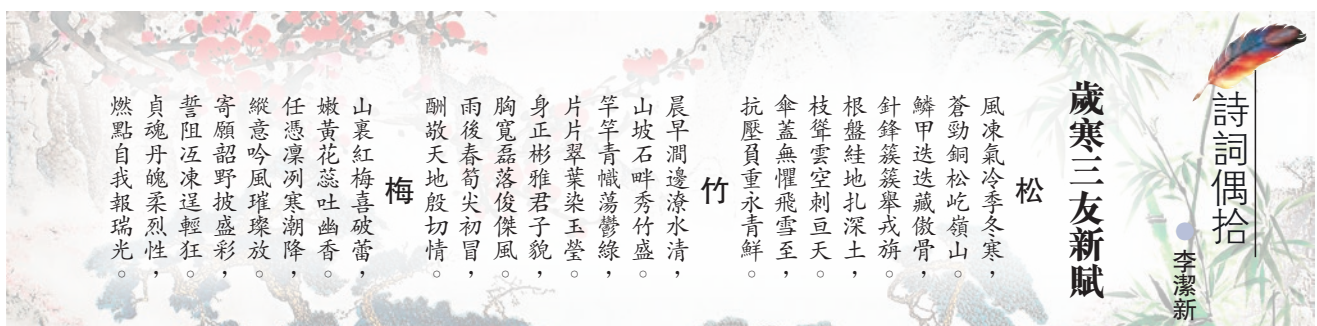 詩詞偶拾
李潔新
歲寒三友新賦
松
風凍氣冷季冬寒，
蒼勁銅松屹嶺山。
鱗甲迭迭藏傲骨，
針鋒簇簇舉戎旃。
根盤絓地扎深土，
枝聳雲空刺亘天。
傘蓋無懼飛雪至，
抗壓負重永青鮮。
竹
晨早澗邊潦水清，
山坡石畔秀竹盛。
竿竿青幟蕩鬱綠，
片片翠葉染玉瑩。
身正彬雅君子貌，
胸寬磊落俊傑風。
雨後春筍尖初冒，
酬敬天地殷切情。
梅
山裏紅梅喜破蕾，
嫩黃花蕊吐幽香。
任憑凜冽寒潮降，
縱意吟風璀璨放。
寄願韶野披盛彩，
誓阻冱凍逞輕狂。
貞魂丹魄柔烈性，
燃點自我報瑞光。